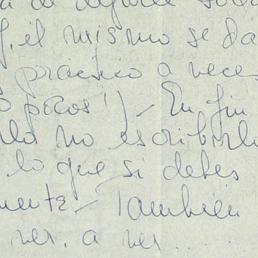 el mismo se da
practico a veces
pesos!) - En fin
no escribirle
lo que si debes
mente - También
ver, a ver.....